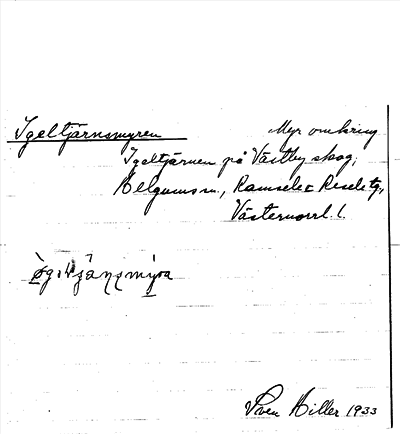 Igeltjärnsmyren
Myr omkring
Igeltjärnen på Västby skog,
Helgums sn., Ramsele o Resele tg,
Västernorrl. l.
Sven Hiller 1933